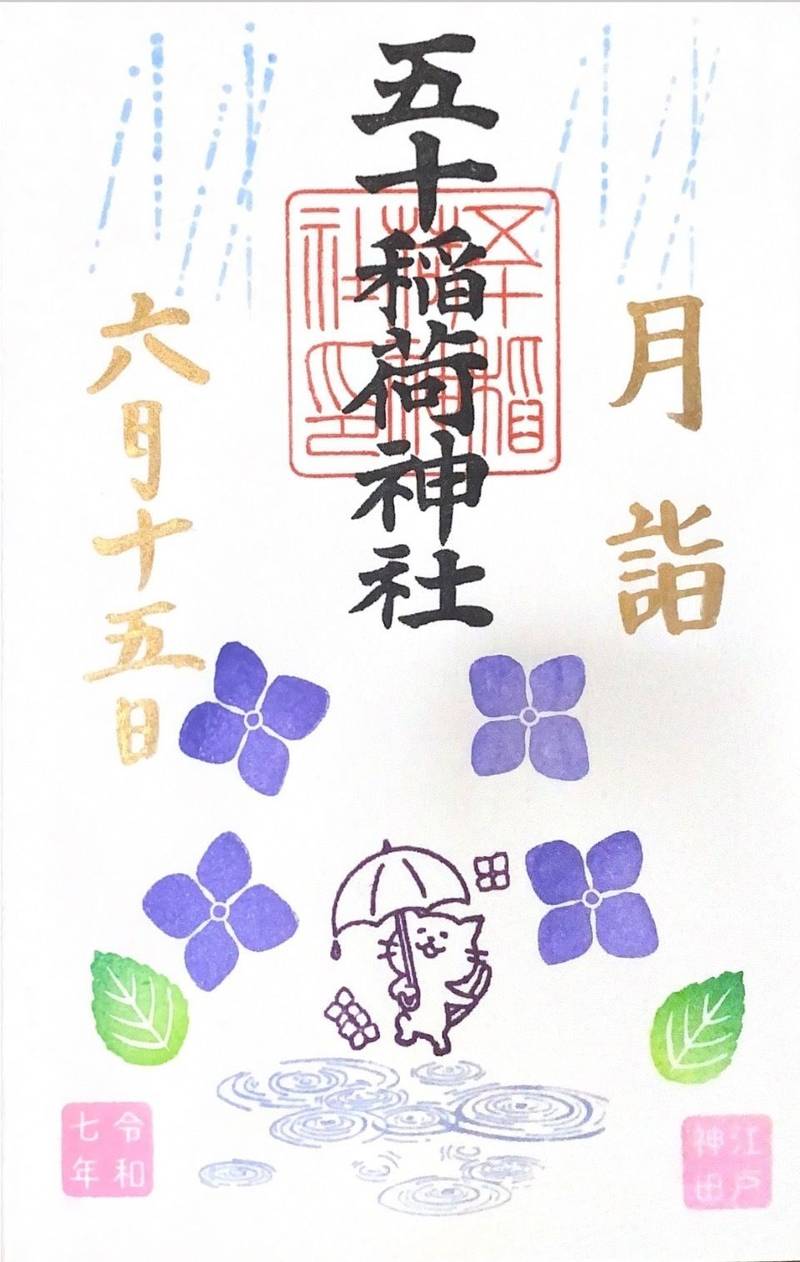 月詣
五十稲荷神社
五十稲荷神社印
六月十五日
江戸
神田
令和
七年